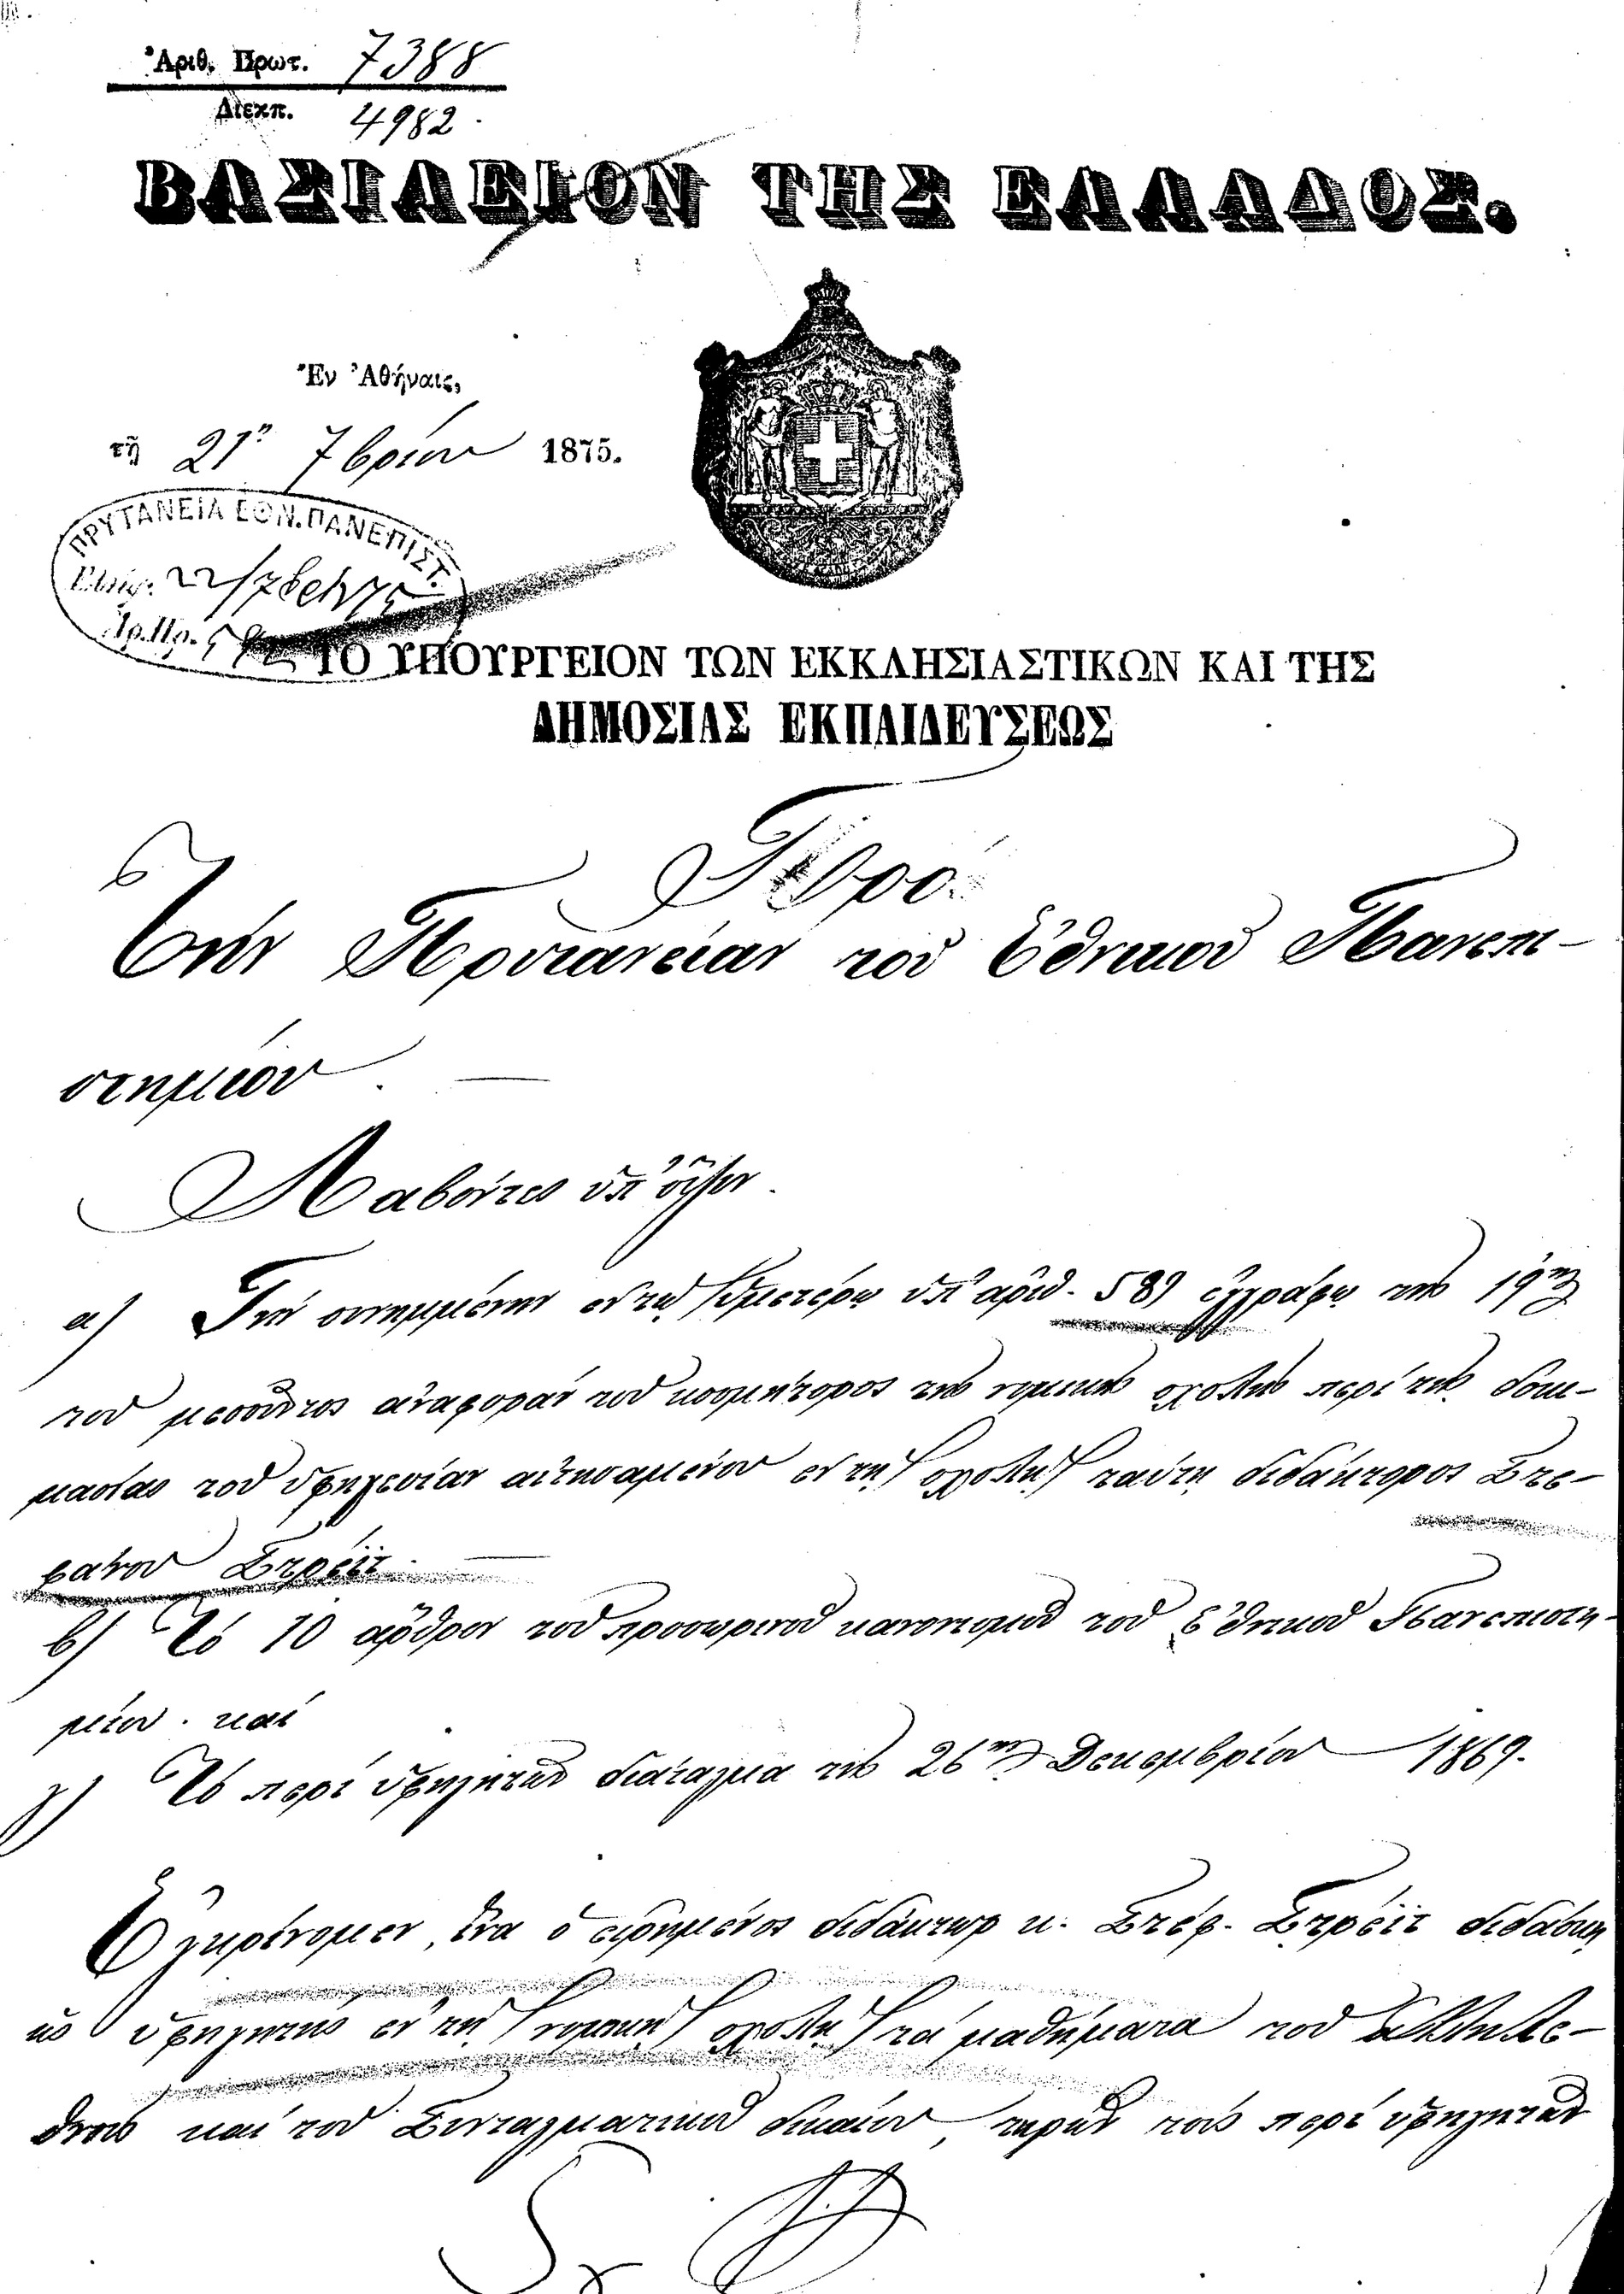 Ἀριθ. Πρωτ. 7388
Διεκπ. 4982
ΒΑΣΙΛΕΙΟΝ ΤΗΣ ΕΛΛΑΔΟΣ.
Ἐν Ἀθήναις,
τῇ 21ῃ 7βρίου 1875.
ΠΡΥΤΑΝΕΙΑ ΕΘΝ. ΠΑΝΕΠΙΣΤ.
22/7βρ/75
Ἀρ. Πρ.
ΤΟ ΥΠΟΥΡΓΕΙΟΝ ΤΩΝ ΕΚΚΛΗΣΙΑΣΤΙΚΩΝ ΚΑΙ ΤΗΣ
ΔΗΜΟΣΙΑΣ ΕΚΠΑΙΔΕΥΣΕΩΣ
Πρὸς
Τὴν Πρυτανείαν τοῦ Ἐθνικοῦ Πανεπι-
στημίου. —
Λαβόντες ὑπ' ὄψιν
α) Τὴν συνημμένην ἐν τῷ ὑμετέρῳ ὑπ' ἀριθ. 589 ἐγγράφῳ τῆς 19ης
τοῦ μεσοῦντος ἀναφορὰν τοῦ κοσμήτορος τῆς νομικῆς σχολῆς περὶ τῆς δοκι-
μασίας τοῦ ὑφηγεσίαν αἰτησαμένου ἐν τῇ σχολῇ ταύτῃ διδάκτορος Στε-
φάνου Στρέϊτ. —
β) Τὸ 10 ἄρθρον τοῦ προσωρινοῦ κανονισμοῦ τοῦ Ἐθνικοῦ Πανεπιστη-
μίου. καὶ
γ) Τὸ περὶ ὑφηγητῶν διάταγμα τῆς 26ης Δεκεμβρίου 1869.
Ἐγκρίνομεν, ἵνα ὁ εἰρημένος διδάκτωρ κ. Στέφ. Στρέϊτ διδάσκῃ
ὡς ὑφηγητὴς ἐν τῇ νομικῇ σχολῇ τὰ μαθήματα τοῦ
καὶ τοῦ Συνταγματικοῦ δικαίου, τηρῶν τοὺς περὶ ὑφηγητῶν